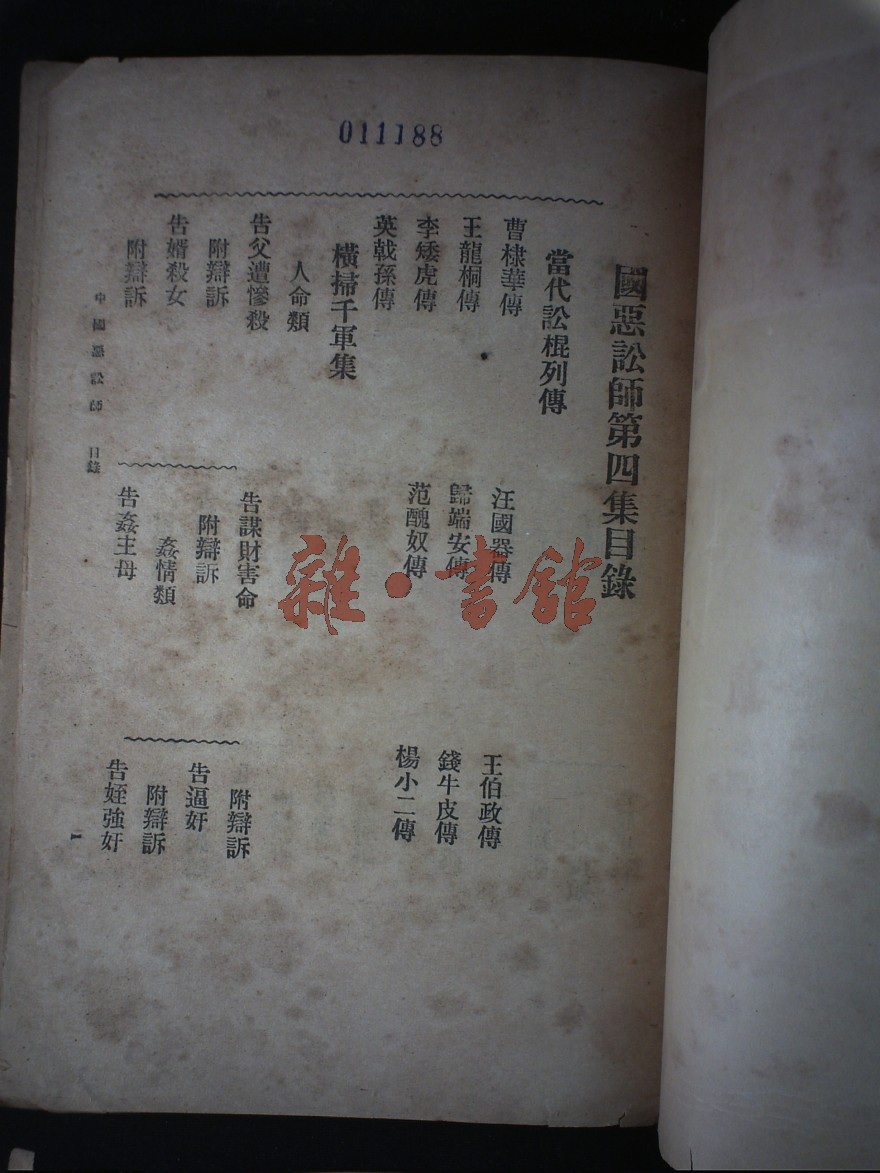 011188
國惡訟師第四集目錄
當代訟棍列傳
曹棣華傳
汪國器傳
王伯政傳
王龍桐傳
歸端安傳
錢牛皮傳
李矮虎傳
范醜奴傳
楊小二傳
英戟孫傳
橫掃千軍集
人命類
告父遭慘殺
告謀財害命
附辯訴
附辯訴
附辯訴
告逼奸
告婿殺女
姦情類
附辯訴
附辯訴
告姦主母
告姪強奸
中國惡訟師 目錄
1
雜·書館